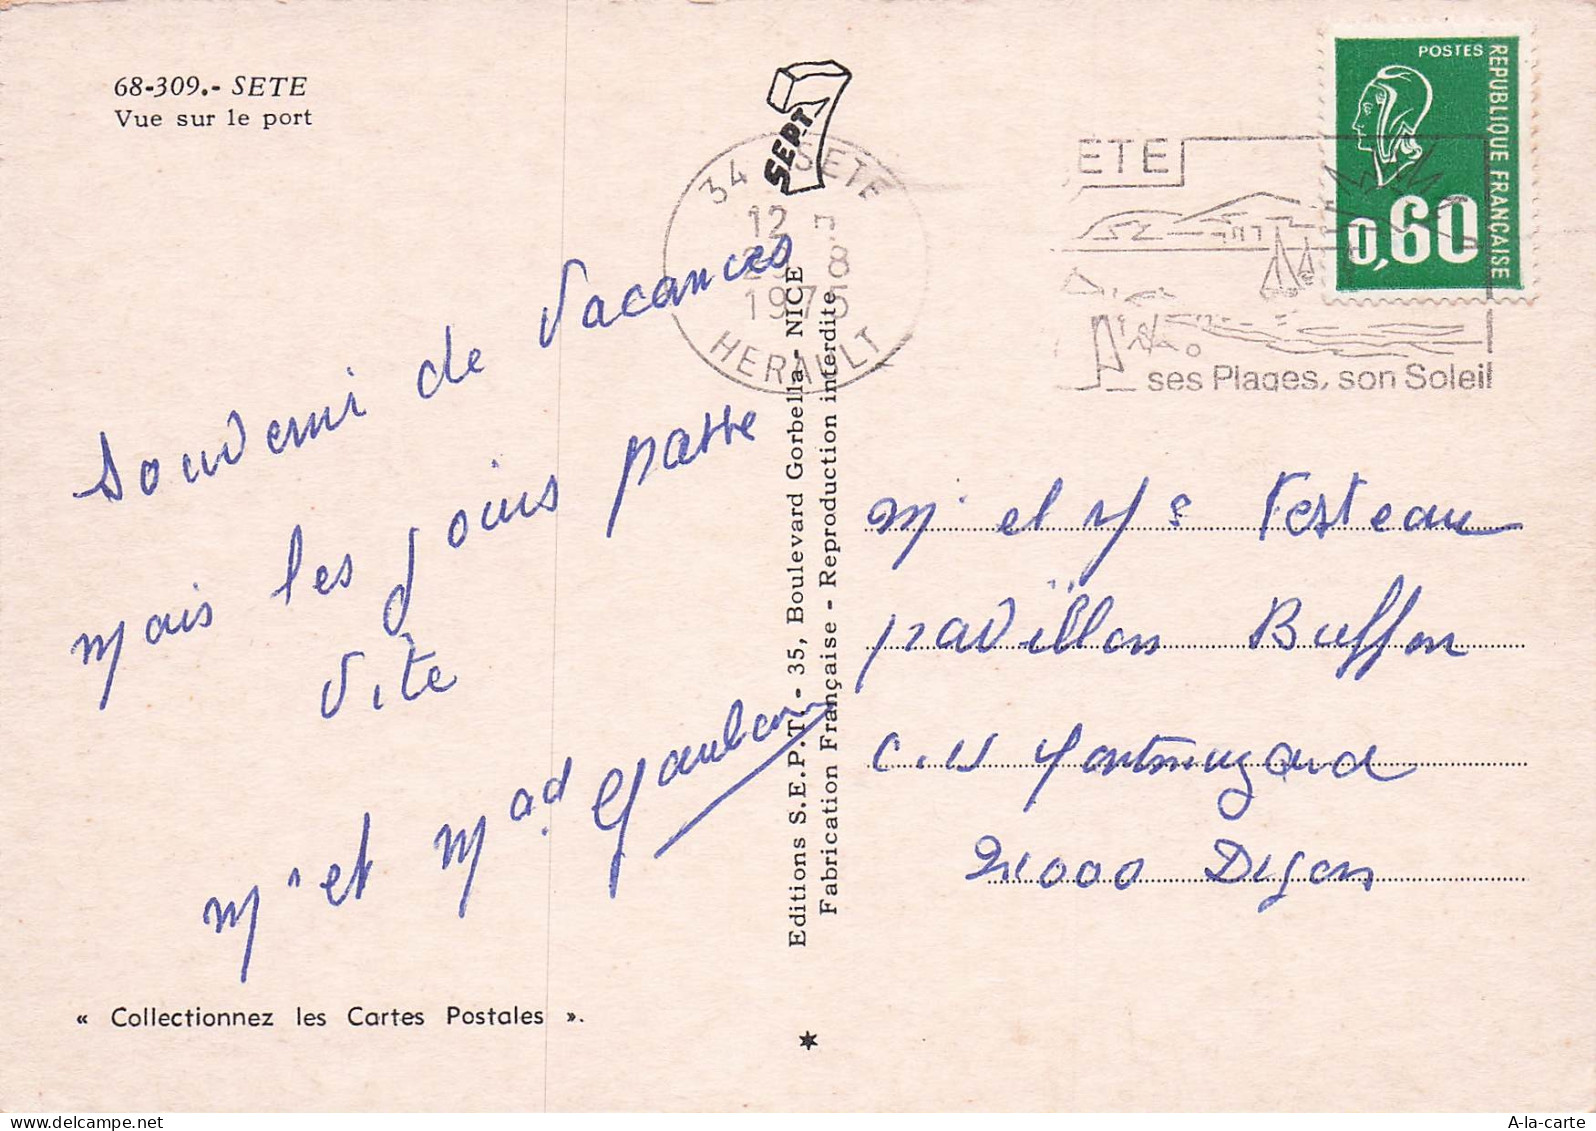 68-309.- SETE
Vue sur le port
SEPT
34 SETE
12 H
8
1975
HERAULT
ETE
ses Plages, son Soleil
POSTES
REPUBLIQUE FRANÇAISE
0,60
Souvenir de Vacances
mais les jours passe
vite
Mr et Mad
Editions S.E.P.T. - 35, Boulevard Gorbella - NICE
Fabrication Française - Reproduction interdite
Mr et Me Festeau
pavillon Buffon
21000 Dijon
« Collectionnez les Cartes Postales ».
A-la-carte